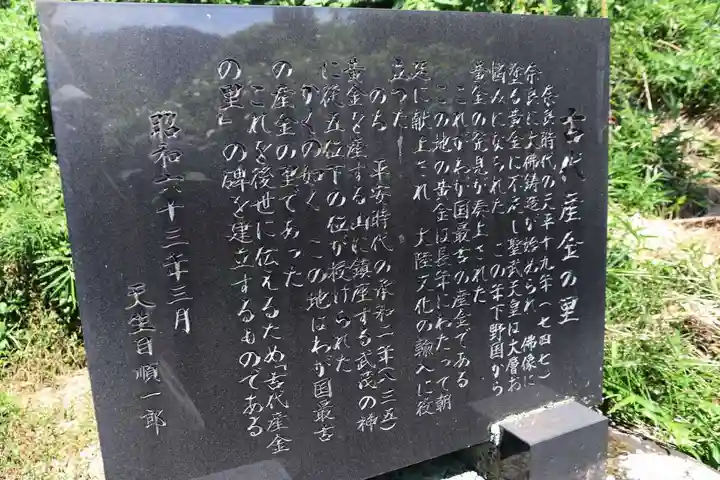 古代産金の里
奈良時代の天平十九年(七四七)
奈良に大佛鋳造が始められ 佛像に
塗る黄金に不足し聖武天皇は大層お
悩みになられた この年下野国から
黄金の発見が奏上された
これがわが国最古の産金である
この地の黄金は長年にわたって朝
廷に献上され 大陸文化の輸入に役
立った
のち 平安時代の承和二年(八三五)
黄金を産する山に鎮座する武茂の神
に従五位下の位が授けられた
かくの如く この地はわが国最古
の産金の里であった
これを後世に伝えるため「古代産金
の里」の碑を建立するものである
昭和六十三年三月
天生目順一郎